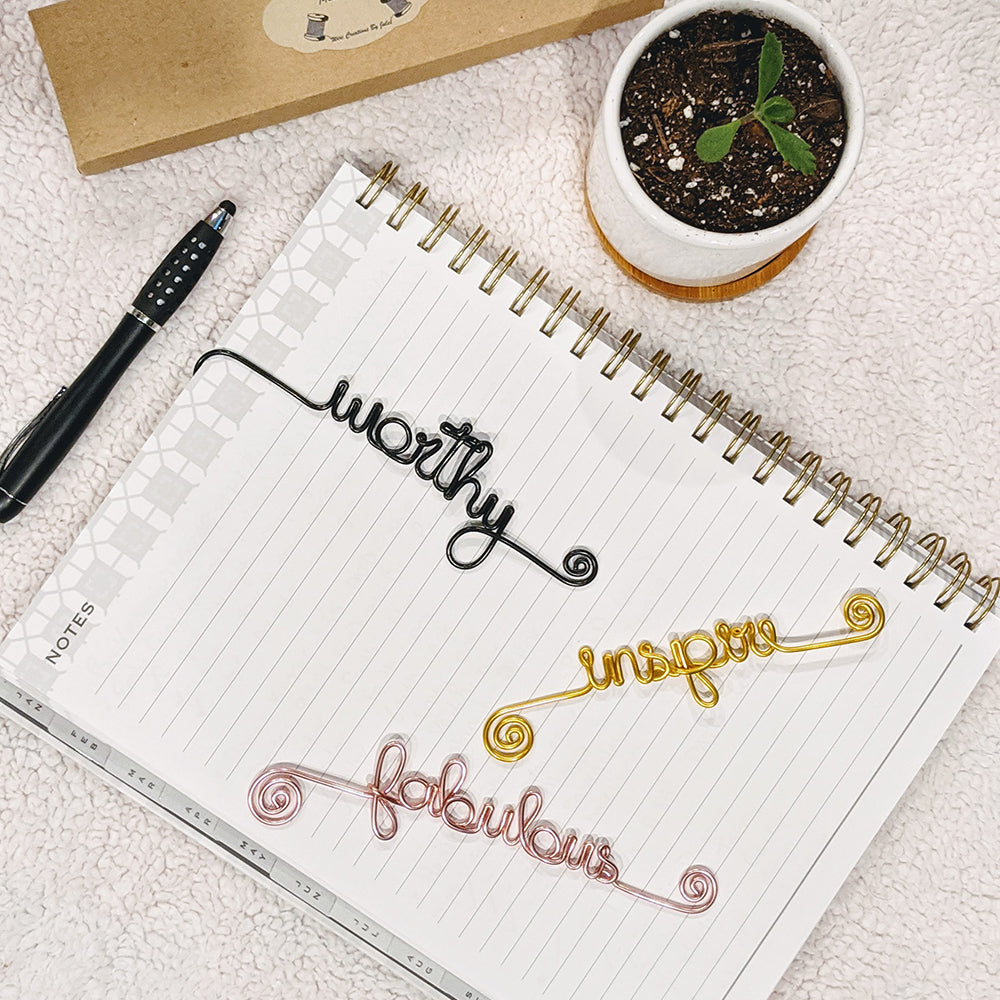 Wire Creations By Jules
worthy
inspire
fabulous
NOTES
JAN
FEB
MAR
APR
MAY
JUN
JUL
AUG